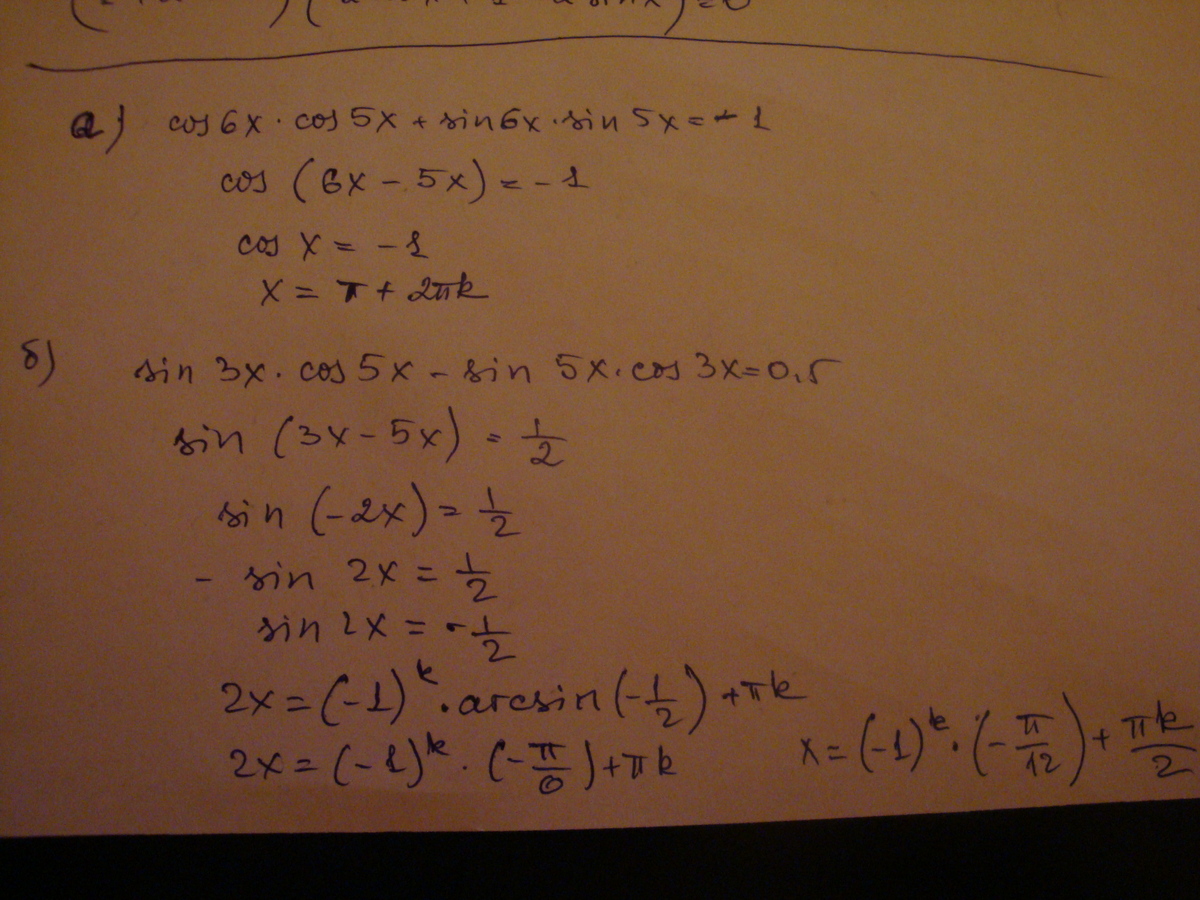 a) cos 6x · cos 5x + sin 6x · sin 5x = -1
cos (6x - 5x) = -1
cos x = -1
x = π + 2πk
б) sin 3x · cos 5x - sin 5x · cos 3x = 0.5
sin (3x - 5x) = 1/2
sin (-2x) = 1/2
- sin 2x = 1/2
sin 2x = - 1/2
2x = (-1)^k · arcsin (-1/2) + πk
2x = (-1)^k · (-π/6) + πk
x = (-1)^k · (-π/12) + πk/2